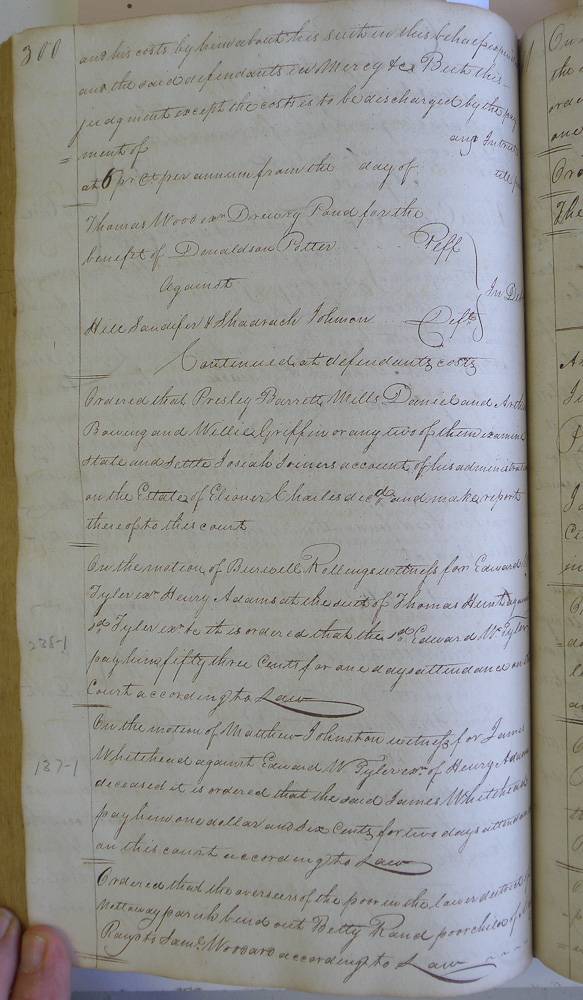 300
and his costs by him about his suit in this behalf expended
and the said defendants in Mercy &c But this
judgment except the costs is to be discharged by the pay
ment of and Interest
at 6 pr Ct per annum from the day of till
Thomas Wood exr Drewry Pond for the
benefit of Donaldson Potter Plff
Against In De
Hill Sandifer & Shadrach Johnson Defts
Continued at defendants costs
Ordered that Presley Barrett, Mills Daniel and
Bowing and Willie Griffin or any two of them examine
state and settle Josiah Joiners account of his administration
on the Estate of Elioner Charles decd and make report
thereof to this court
On the motion of Burwell Rollings witness for Edward
Tyler exr Henry Adams at the suit of Thomas Hunt against
sd Tyler exr &c it is ordered that the sd Edward W. Tyler
238-1
pay him fifty three Cents for one days attendance on
Court according to Law
On the motion of Matthew Johnston witness for James
Whitehead against Edward W. Tyler exr of Henry Adams
137-1
deceased it is ordered that the said James Whitehead
pay him one dollar and six Cents for two days attendance
on this court according to Law
Ordered that the overseers of the poor in the lower district
Nottoway parish bind out Betty Rand poor child of
to Saml Woodard according to Law